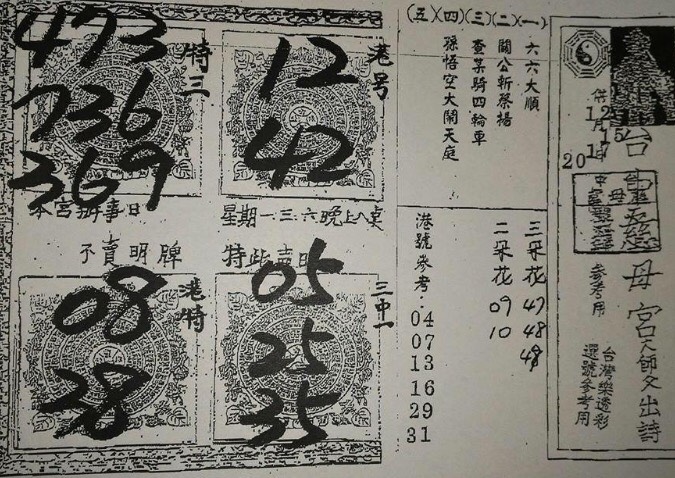 台靈慈母宮大師父出詩
參考用
台灣樂透彩
選號參考用
12
15
2017
(五)(四)(三)(二)(一)
六六大順
關公斬蔡揚
查某騎四輪車
孫悟空大鬧天庭
三朵花 47 48 49
二朵花 09 10
港號參考:04 07 13 16 29 31
港号
12
42
特三
473
736
369
本宮辦事日
星期一三六晚上八点
不賣明牌
特此聲明
三中一
05
25
35
港特
08
38